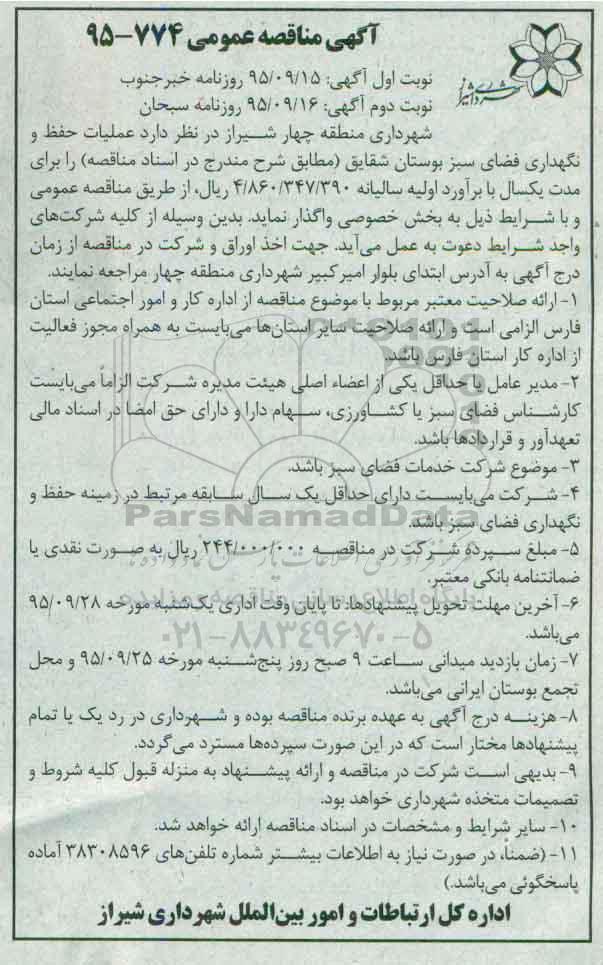 آگهی مناقصه عمومی ۷۷۴-۹۵
شهرداری شیراز
نوبت اول آگهی: ۹۵/۰۹/۱۵ روزنامه خبرجنوب
نوبت دوم آگهی: ۹۵/۰۹/۱۶ روزنامه سبحان
شهرداری منطقه چهار شیراز در نظر دارد عملیات حفظ و
نگهداری فضای سبز بوستان شقایق (مطابق شرح مندرج در اسناد مناقصه) را برای
مدت یکسال با برآورد اولیه سالیانه ۴/۸۶۰/۳۴۷/۳۹۰ ریال، از طریق مناقصه عمومی
و با شرایط ذیل به بخش خصوصی واگذار نماید. بدین وسیله از کلیه شرکت‌های
واجد شرایط دعوت به عمل می‌آید. جهت اخذ اوراق و شرکت در مناقصه از زمان
درج آگهی به آدرس ابتدای بلوار امیرکبیر شهرداری منطقه چهار مراجعه نمایند.
۱- ارائه صلاحیت معتبر مربوط با موضوع مناقصه از اداره کار و امور اجتماعی استان
فارس الزامی است و ارائه صلاحیت سایر استان‌ها می‌بایست به همراه مجوز فعالیت
از اداره کار استان فارس باشد.
۲- مدیر عامل یا حداقل یکی از اعضاء اصلی هیئت مدیره شرکت الزاماً می‌بایست
کارشناس فضای سبز یا کشاورزی، سهام دارا و دارای حق امضا در اسناد مالی
تعهدآور و قراردادها باشد.
۳- موضوع شرکت خدمات فضای سبز باشد.
۴- شرکت می‌بایست دارای حداقل یک سال سابقه مرتبط در زمینه حفظ و
نگهداری فضای سبز باشد.
ParsNamadData
۵- مبلغ سپرده شرکت در مناقصه ۲۴۴/۰۰۰/۰۰۰ ریال به صورت نقدی یا
ضمانتنامه بانکی معتبر.
پایگاه اطلاع رسانی مناقصه و مزایده
۶- آخرین مهلت تحویل پیشنهادها: تا پایان وقت اداری یکشنبه مورخه ۹۵/۰۹/۲۸
می‌باشد.
۰۲۱-۸۸۳۴۹۶۷۰-۵
۷- زمان بازدید میدانی ساعت ۹ صبح روز پنج‌شنبه مورخه ۹۵/۰۹/۲۵ و محل
تجمع بوستان ایرانی می‌باشد.
۸- هزینه درج آگهی به عهده برنده مناقصه بوده و شهرداری در رد یک یا تمام
پیشنهادها مختار است که در این صورت سپرده‌ها مسترد می‌گردد.
۹- بدیهی است شرکت در مناقصه و ارائه پیشنهاد به منزله قبول کلیه شروط و
تصمیمات متخذه شهرداری خواهد بود.
۱۰- سایر شرایط و مشخصات در اسناد مناقصه ارائه خواهد شد.
۱۱- (ضمناً، در صورت نیاز به اطلاعات بیشتر شماره تلفن‌های ۳۸۳۰۸۵۹۶ آماده
پاسخگوئی می‌باشد.)
اداره کل ارتباطات و امور بین‌الملل شهرداری شیراز